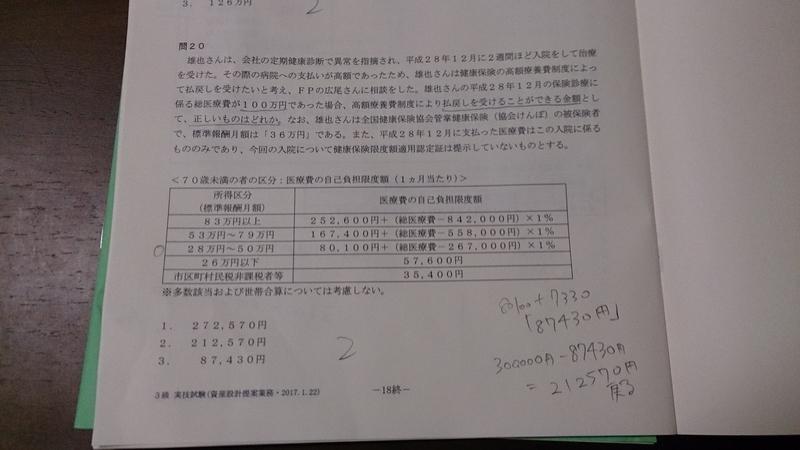 3. 126万円
2
問20
雄也さんは、会社の定期健康診断で異常を指摘され、平成28年12月に2週間ほど入院をして治療
を受けた。その際の病院への支払いが高額であったため、雄也さんは健康保険の高額療養費制度によっ
て払戻しを受けたいと考え、FPの広尾さんに相談をした。雄也さんの平成28年12月の保険診療に
係る総医療費が100万円であった場合、高額療養費制度により払戻しを受けることができる金額とし
て、正しいものはどれか。なお、雄也さんは全国健康保険協会管掌健康保険（協会けんぽ）の被保険者
で、標準報酬月額は「36万円」である。また、平成28年12月に支払った医療費はこの入院に係る
もののみであり、今回の入院について健康保険限度額適用認定証は提示していないものとする。
＜70歳未満の者の区分：医療費の自己負担限度額（1ヵ月当たり）＞
所得区分
（標準報酬月額） 医療費の自己負担限度額
83万円以上 252,600円＋（総医療費－842,000円）×1％
53万円～79万円 167,400円＋（総医療費－558,000円）×1％
28万円～50万円 80,100円＋（総医療費－267,000円）×1％
26万円以下 57,600円
市区町村民税非課税者等 35,400円
※多数該当および世帯合算については考慮しない。
80100+7330
「87430円」
1. 272,570円
2. 212,570円
3. 87,430円
2
300000円-87430円
=212570円
戻る
3級 実技試験(資産設計提案業務・2017.1.22)
－18終－